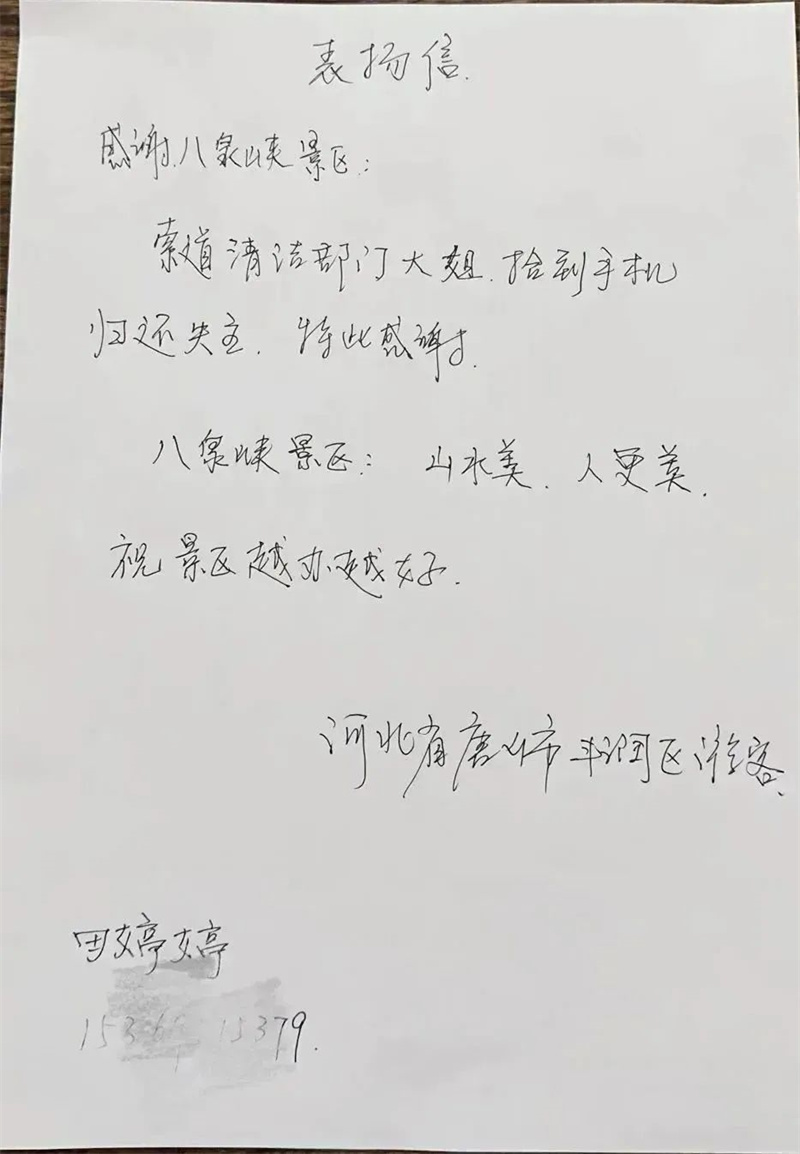 表扬信.
感谢八泉峡景区:
索道清洁部门大姐.拾到手机
归还失主.特此感谢.
八泉峡景区: 山水美.人更美.
祝景区越办越好.
河北省唐山市丰润区游客.
田婷婷